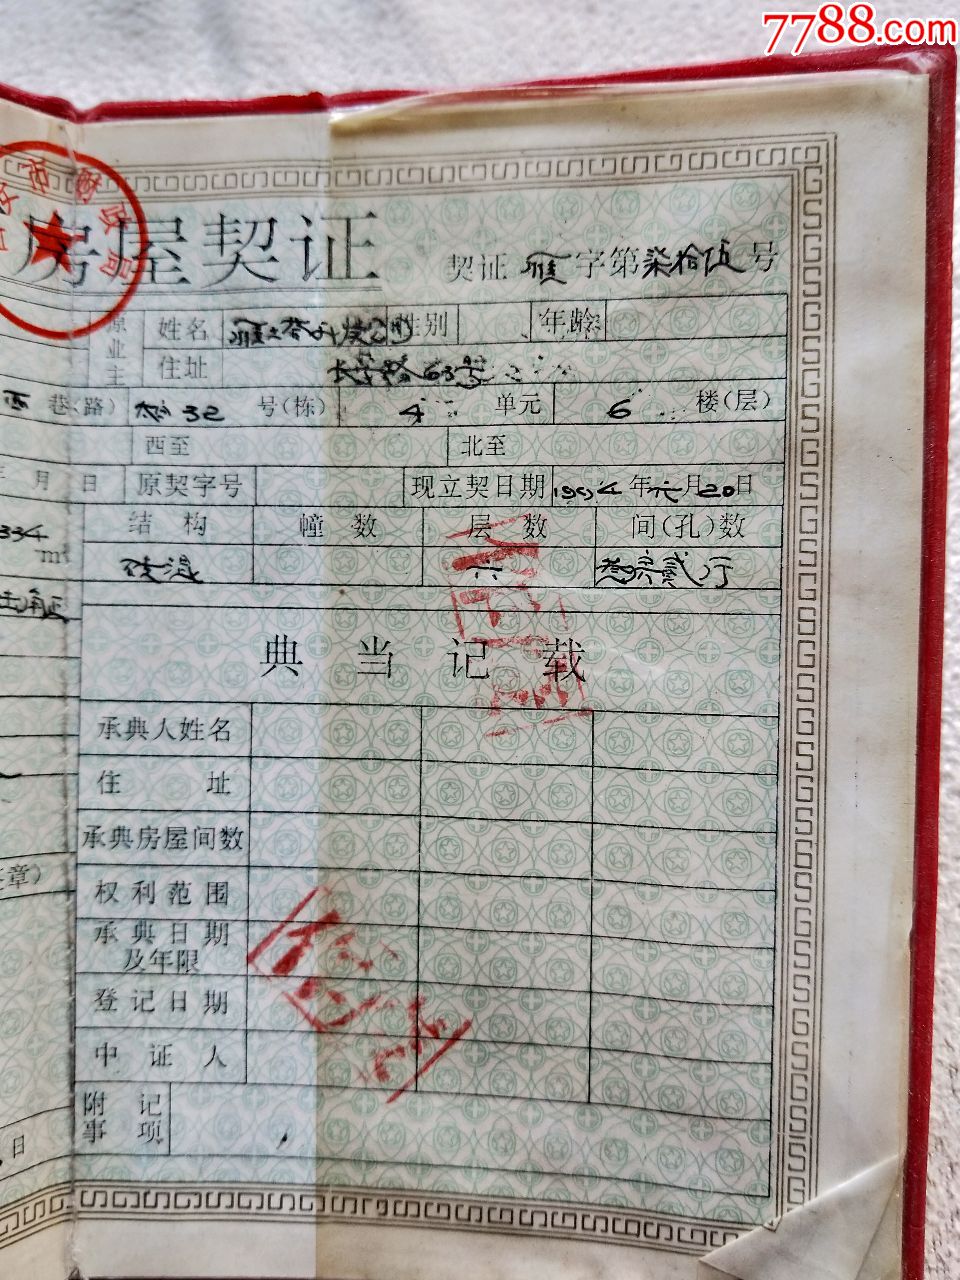 7788.com
市财政局
房屋契证
契证 雁 字第柒拾伍号
原业主 姓名 雁塔开发公司 性别 年龄
住址 长安路63号
西 巷(路) 32 号(栋) 4 单元 6 楼(层)
西至 北至
年 月 日 原契字号 现立契日期 1994年六月20日
334 m² 结构 幢数 层数 间(孔)数
砖混 六 贰厅
典当记载
承典人姓名
住址
承典房屋间数
权利范围
承典日期及年限
登记日期
中证人
附记事项
章)
日